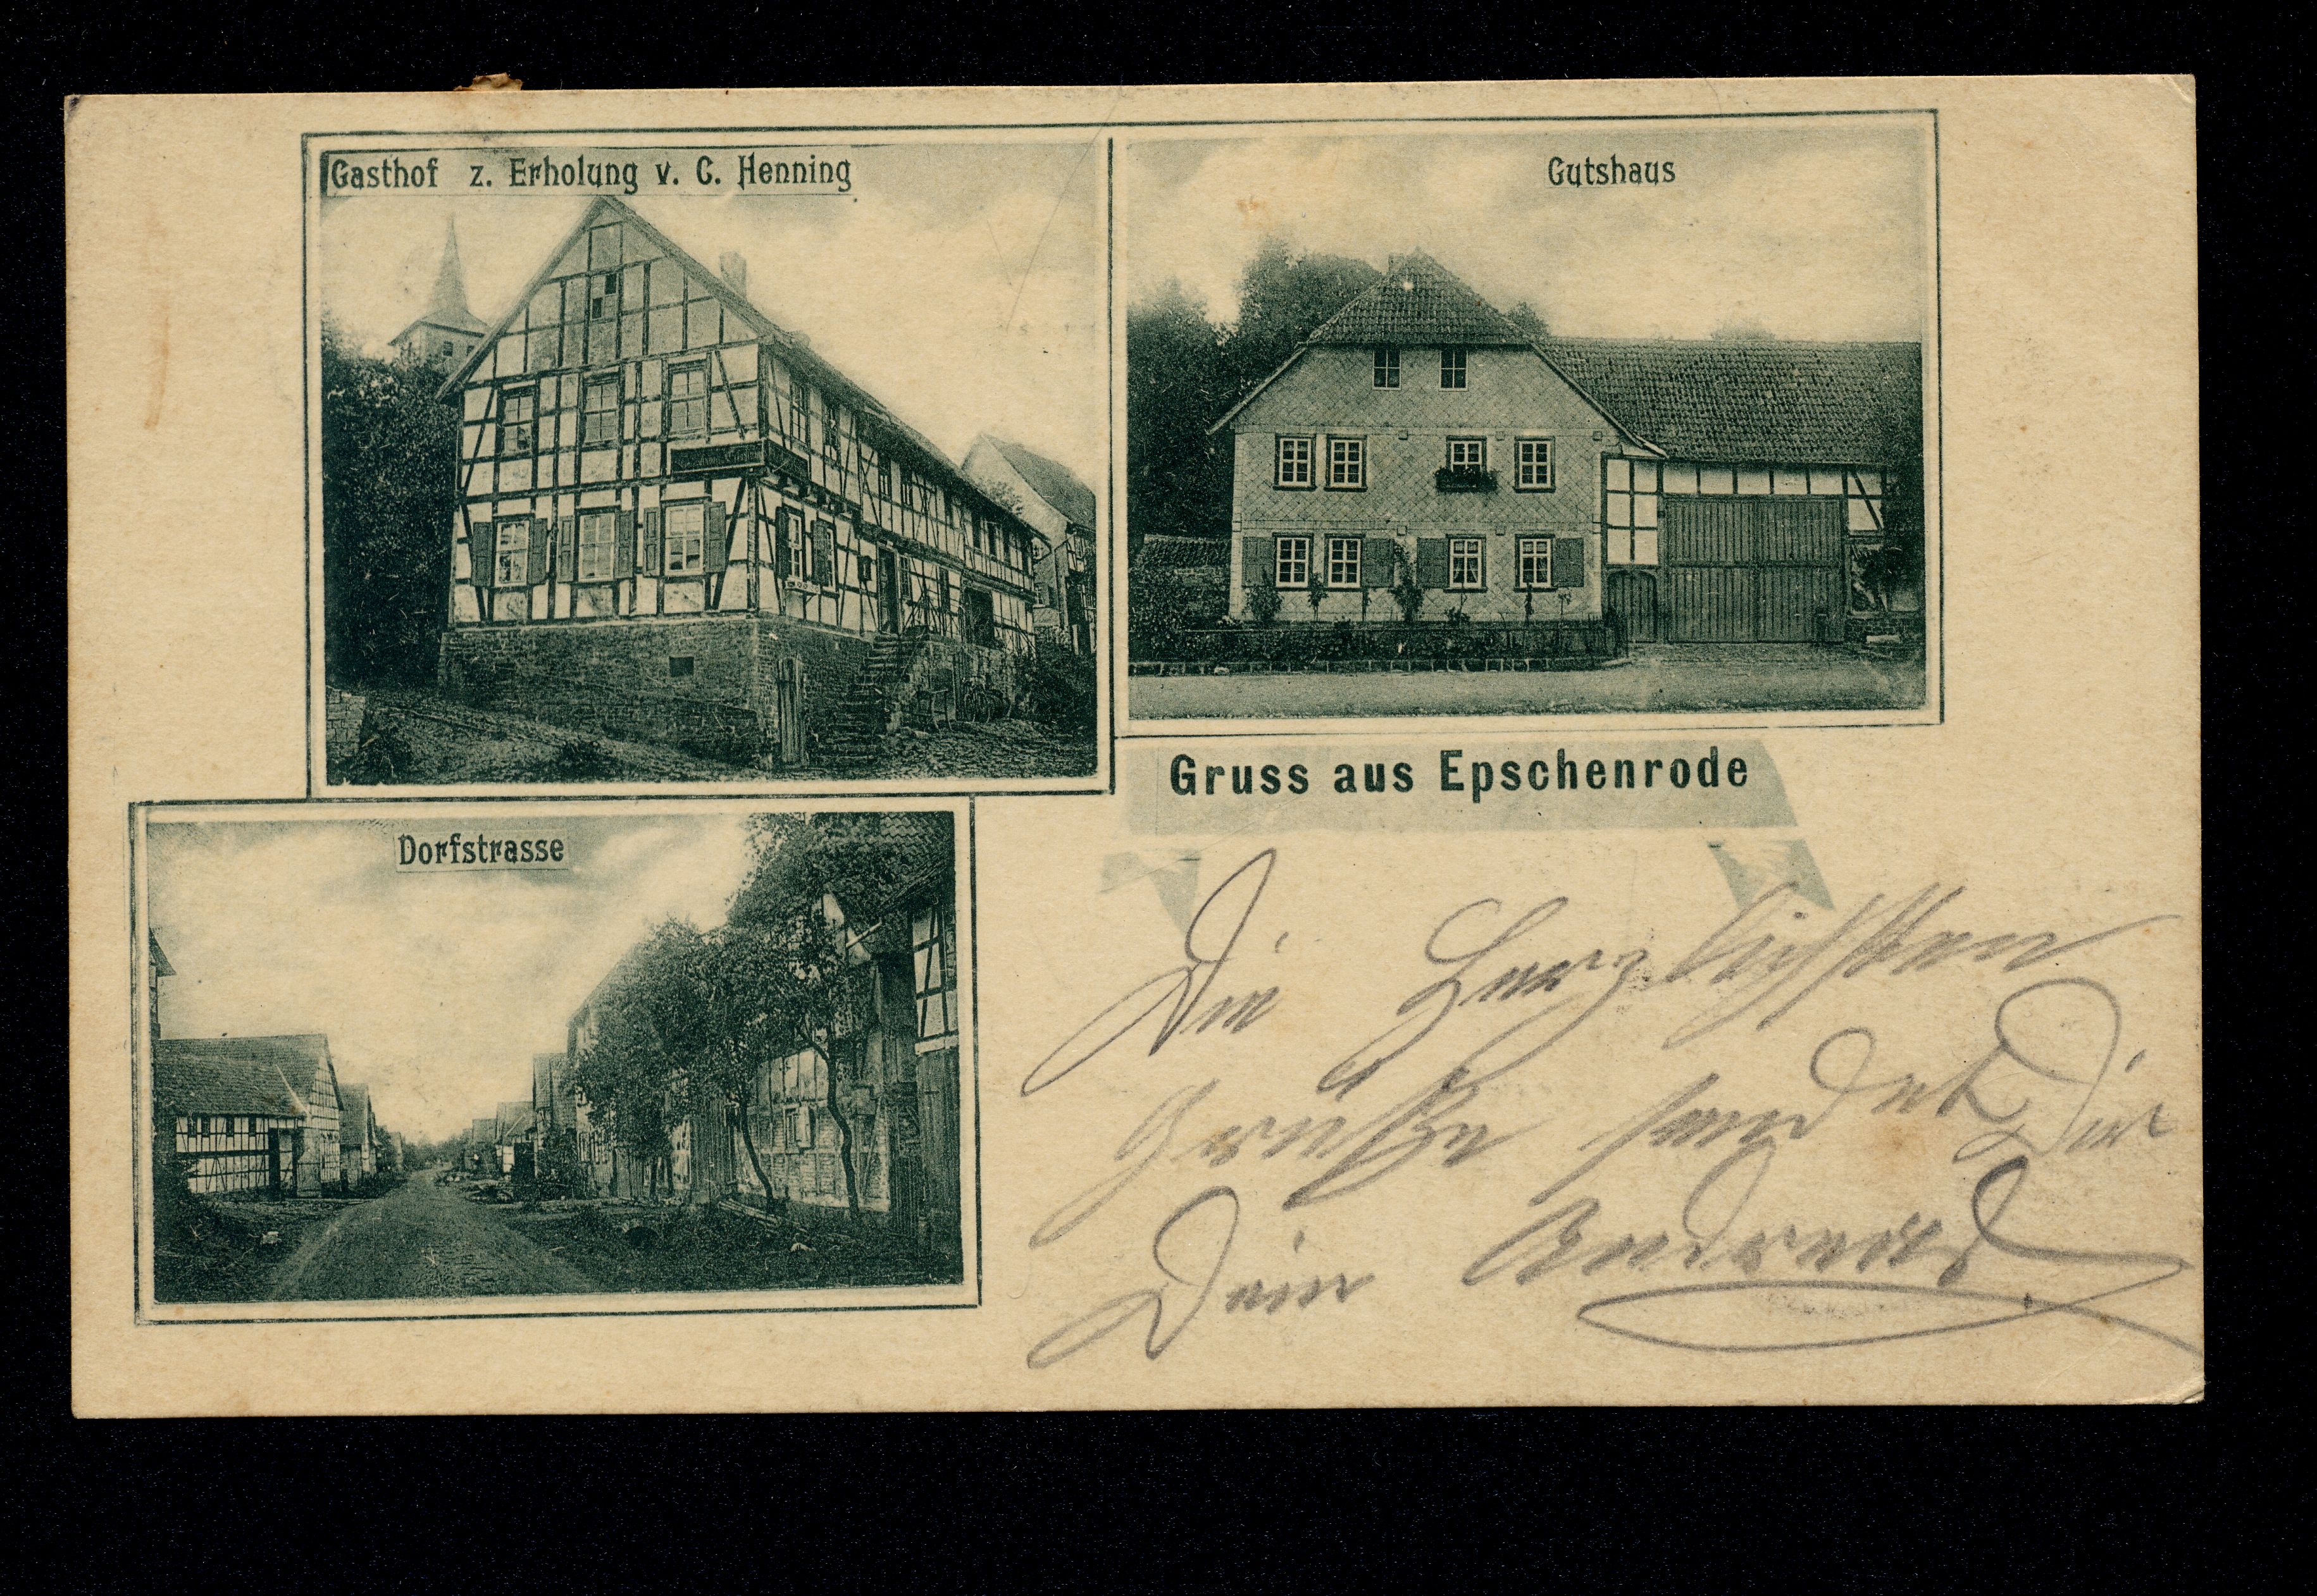 Gasthof z. Erholung v. C. Henning
Gutshaus
Gruss aus Epschenrode
Dorfstrasse
Die Herzlichsten
Grüße sendet Dir
Dein Andreas